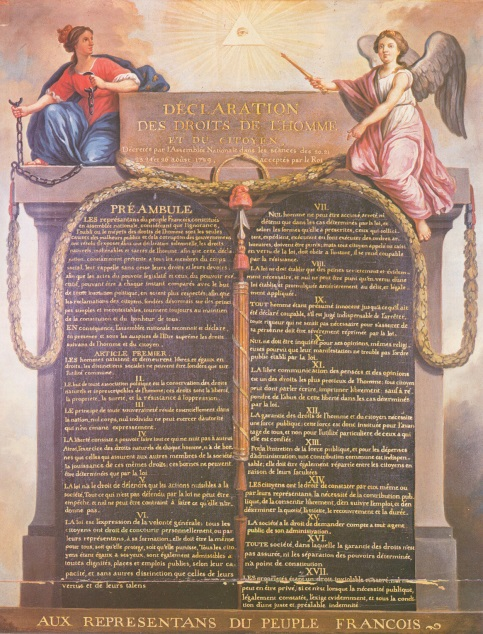 DÉCLARATION
DES DROITS DE L'HOMME
ET DU CITOYEN
Décretés par l'Assemblée Nationale dans les séances des 20, 21
23, 24 et 26 août 1789, acceptés par le Roi
PRÉAMBULE
LES représentans du peuple François, constitués
en assemblée nationale, considérant que l'ignorance,
l'oubli ou le mépris des droits de l'homme sont les seules
causes des malheurs publics et de la corruption des gouvernemens
ont résolu d'exposer dans une déclaration solemnelle, les droits
naturels, inaliénables et sacrés de l'homme, afin que cette décla-
ration, constamment présente à tous les membres du corps
social, leur rappelle sans cesse leurs droits et leurs devoirs,
afin que les actes du pouvoir législatif et ceux du pouvoir exé-
cutif, pouvant être à chaque instant comparés avec le but
de toute institution politique, en soient plus respectés; afin que
les réclamations des citoyens, fondées désormais sur des principes
simples et incontestables, tournent toujours au maintien
de la constitution et du bonheur de tous.
EN conséquence, l'assemblée nationale reconnoit et déclare,
en présence et sous les auspices de l'Etre suprême les droits
suivans de l'homme et du citoyen.
ARTICLE PREMIER.
LES hommes naissent et demeurent libres et égaux en
droits, les distinctions sociales ne peuvent être fondées que sur
l'utilité commune.
II.
LE but de toute association politique est la conservation des droits
naturels et imprescriptibles de l'homme; ces droits sont la liberté,
la propriété, la sureté, et la résistance à l'oppression.
III.
LE principe de toute souveraineté réside essentiellement dans
la nation, nul corps, nul individu ne peut exercer d'autorité
qui n'en émane expressément.
IV.
LA liberté consiste à pouvoir faire tout ce qui ne nuit pas à autrui
Ainsi, l'exercice des droits naturels de chaque homme, n'a de bor-
nes que celles qui assurent aux autres membres de la société
la jouissance de ces mêmes droits; ces bornes ne peuvent
être déterminées que par la loi
V.
LA loi n'a le droit de défendre que les actions nuisibles à la
société. Tout ce qui n'est pas défendu par la loi ne peut être
empêché, et nul ne peut être contraint à faire ce qu'elle n'or-
donne pas.
VI.
LA loi est l'expression de la volonté générale; tous les
citoyens ont droit de concourir personnellement, ou par
leurs représentans, à sa formation; elle doit être la même
pour tous, soit qu'elle protege, soit qu'elle punisse. Tous les citoy-
ens étant égaux à ses yeux, sont également admissibles à
toutes dignités, places et emplois publics, selon leur ca-
pacité, et sans autres distinction que celles de leurs
vertus et de leurs talens.
VII.
NUL homme ne peut être accusé, arrêté, ni
détenu que dans les cas déterminés par la loi, et
selon les formes qu'elle a prescrites, ceux qui sollici-
tent, expédient, exécutent ou font exécuter des ordres ar-
bitraires, doivent être punis; mais tout citoyen appelé ou saisi
en vertu de la loi, doit obéir à l'instant, il se rend coupable
par la résistance.
VIII.
LA loi ne doit établir que des peines strictement et évidem-
ment nécessaires, et nul ne peut être puni qu'en vertu d'une
loi établie et promulguée antérieurement au délit, et légale-
ment appliquée.
IX.
TOUT homme étant présumé innocent jusqu'à ce qu'il ait
été déclaré coupable, s'il est jugé indispensable de l'arrêter,
toute rigueur qui ne serait pas nécessaire pour s'assurer de
sa personne doit être sévèrement réprimée par la loi.
X.
NUL ne doit être inquiété pour ses opinions, mêmes religi-
euses pourvu que leur manifestation ne trouble pas l'ordre
public établi par la loi.
XI.
LA libre communication des pensées et des opinions
est un des droits les plus précieux de l'homme; tout citoyen
peut donc parler, écrire, imprimer librement, sauf à ré-
pondre de l'abus de cette liberté dans les cas déterminés
par la loi.
XII.
LA garantie des droits de l'homme et du citoyen nécessite
une force publique; cette force est donc instituée pour l'avan-
tage de tous, et non pour l'utilité particuliere de ceux à qui
elle est confiée.
XIII.
Pour l'entretien de la force publique, et pour les dépenses
d'administration, une contribution commune est indispen-
sable; elle doit être également répartie entre les citoyens en
raison de leurs facultées
XIV.
LES citoyens ont le droit de constater par eux même ou
par leurs représentans, la nécessité de la contribution pub-
lique, de la consentir librement, d'en suivre l'emploi, et d'en
déterminer la quotité, l'assiette, le recouvrement et la durée.
XV.
LA société a le droit de demander compte à tout agent
public de son administration.
XVI.
TOUTE société, dans laquelle la garantie des droits n'est
pas assurée, ni la séparation des pouvoirs déterminée,
n'a point de constitution.
XVII.
LES propriétés étant un droit inviolable et sacré, nul ne
peut en être privé, si ce n'est lorsque la nécessité publique,
légalement constatée, l'exige évidemment, et sous la condi-
tion d'une juste et préalable indemnité.
AUX REPRESENTANS DU PEUPLE FRANCOIS